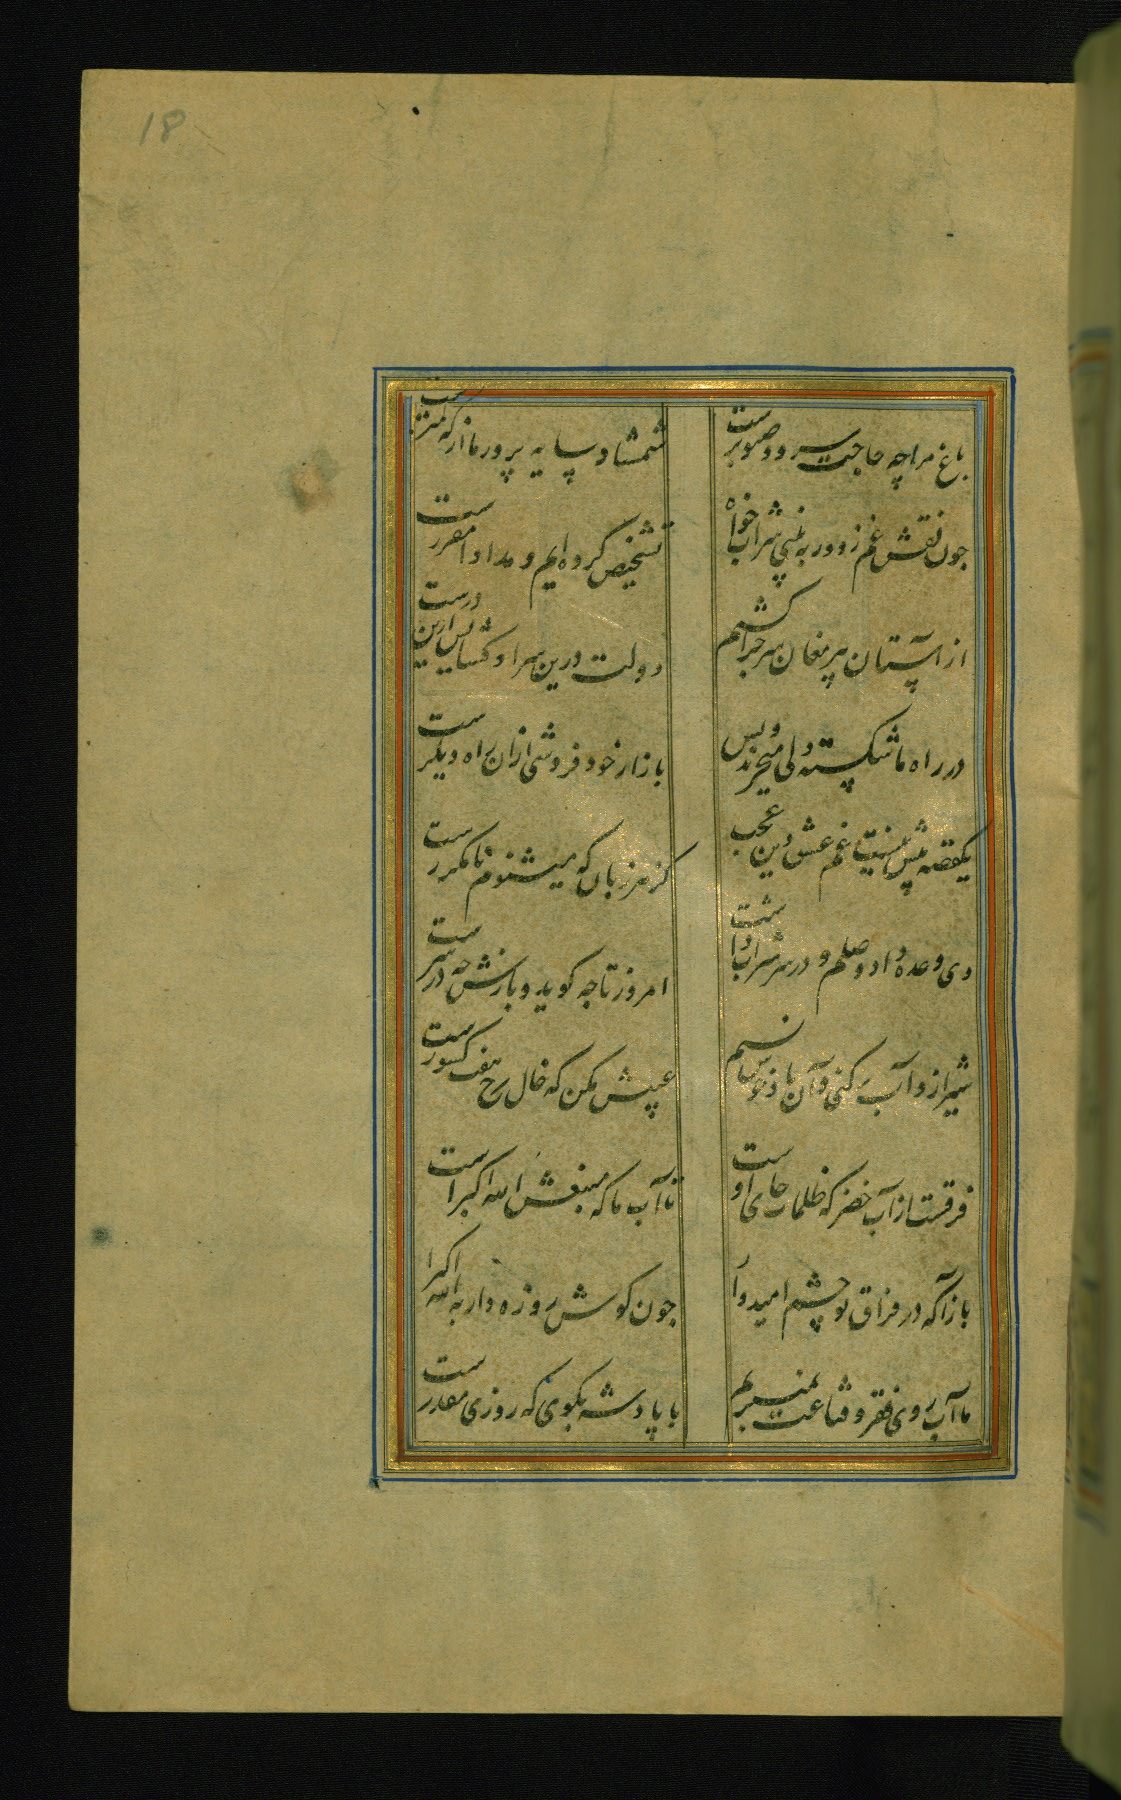 18
باغ مرا چه حاجت سرو و صنوبرست شمشاد سایه پرور ما از که کمترست
چون نقش غم ز دور به بینی شراب خواه تشخیص کرده‌ایم و مداوا مقررست
از آستان پیر مغان سر چرا کشم دولت درین سرا و گشایش ازین درست
در راه ما شکسته دلی میخرند و بس بازار خود فروشی از آن راه دیگرست
یکقصه بیش نیست غم عشق وین عجب کز هر زبان که میشنوم نامکررست
دی وعده داد وصلم و در سر شراب داشت امروز تا چه گوید و بازش چه در سرست
شیراز و آب رکنی و آن باد خوش نسیم عیبش مکن که خال رخ هفت کشورست
فرقست از آب خضر که ظلمات جای اوست تا آب ما که منبعش الله اکبرست
بازآ که در فراق تو چشم امیدوار چون گوش روزه دار به الله اکبر
ما آب روی فقر و قناعت نمیبریم با پادشه بگوی که روزی مقدرست